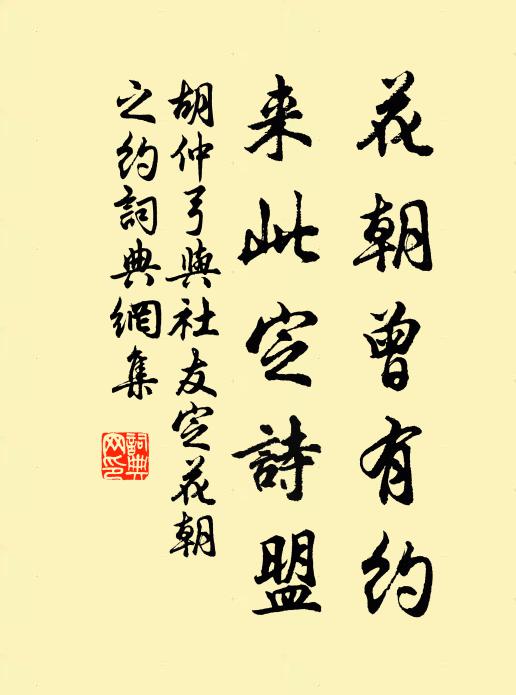 花朝曾有約
來此定詩盟
胡仲弓與社友定花朝
之約詞典網集
詞典
網印